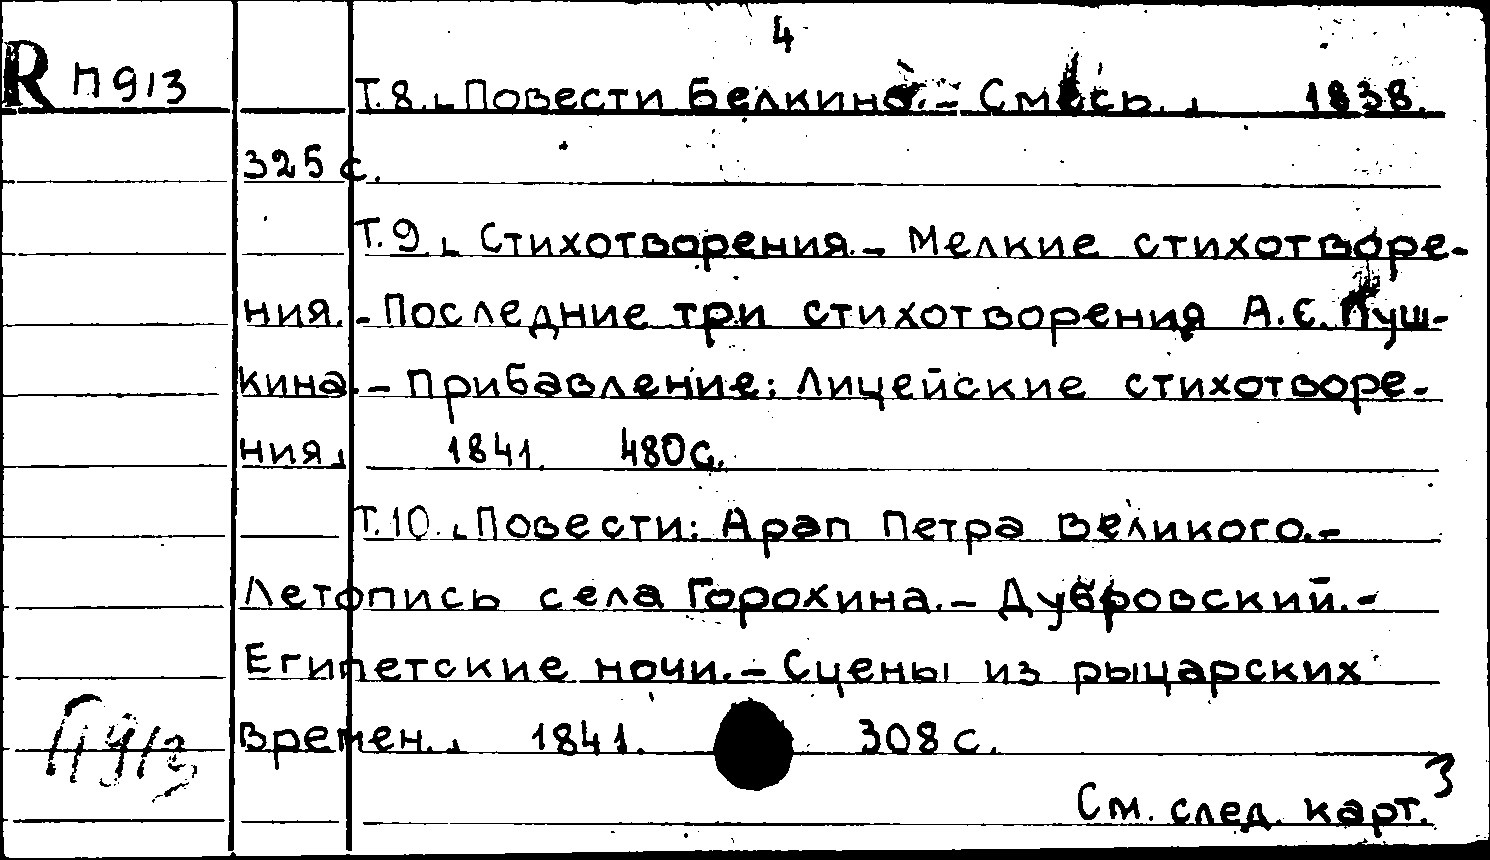 4
R П913
Т.8. [Повести Белкина. – Смесь.] 1838.
325 с.
Т.9 [Стихотворения. – Мелкие стихотворе-
ния. – Последние три стихотворения А.С. Пуш-
кина. – Прибавление: Лицейские стихотворе-
ния] 1841. 480с.
Т.10. [Повести: Арап Петра Великого. –
Летопись села Горохина. – Дубровский. –
Египетские ночи. – Сцены из рыцарских
времен.] 1841. 308 с.
П913
См. след. карт. 3